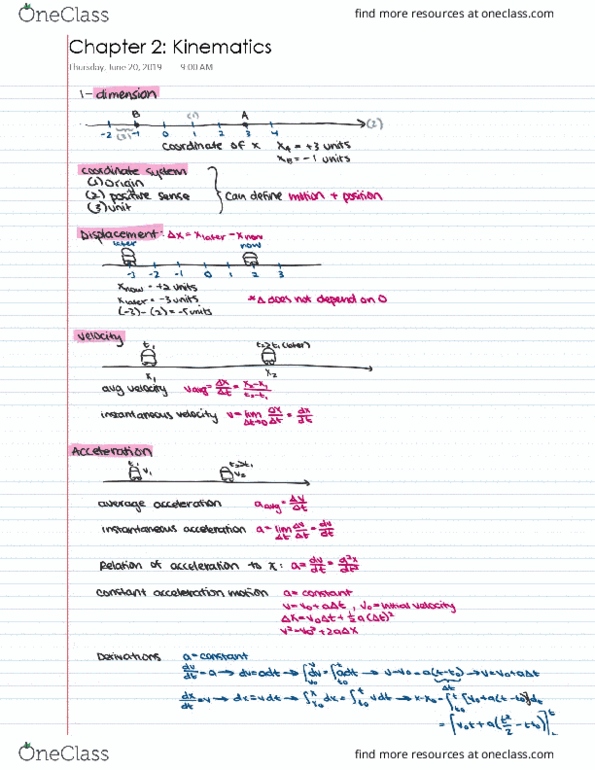 OneClass
find more resources at oneclass.com
Chapter 2: Kinematics
Thursday, June 20, 2019 9:00 AM
1-dimension
B (1) A
-2 (3) -1 0 1 2 3 4 (2)
coordinate of x xA = +3 units
xB = -1 units
coordinate system
(1) origin
(2) positive sense
(3) unit
can define motion + position
Displacement: Δx = xlater - xnow
later now
-3 -2 -1 0 1 2 3
xnow = +2 units
xlater = -3 units
(-3) - (2) = -5 units
*Δ does not depend on O
velocity
t1 t2>t1 (later)
x1 x2
avg velocity vavg = Δx/Δt = x2-x1/t2-t1
instantaneous velocity v = lim Δt→0 Δx/Δt = dx/dt
Acceleration
t1 v1 t2>t1 v2
average acceleration aavg = Δv/Δt
instantaneous acceleration a = lim Δt Δv/Δt = dv/dt
Relation of acceleration to x: a = dv/dt = d²x/dt²
constant acceleration motion a = constant
v = v0 + aΔt, v0 = initial velocity
Δx = v0Δt + 1/2 a(Δt)²
v² = v0² + 2aΔx
Derivations a = constant
dv/dt = a → dv = adt → ∫v0^v dv = ∫t0^t adt → v-v0 = a(t-t0) → v = v0 + aΔt
Δt
dx/dt = v → dx = vdt → ∫x0^x dx = ∫t0^t vdt → x-x0 = ∫t0^t [v0 + a(t-t0)]dt
= [v0t + a(t²/2 - tt0)]
OneClass
find more resources at oneclass.com